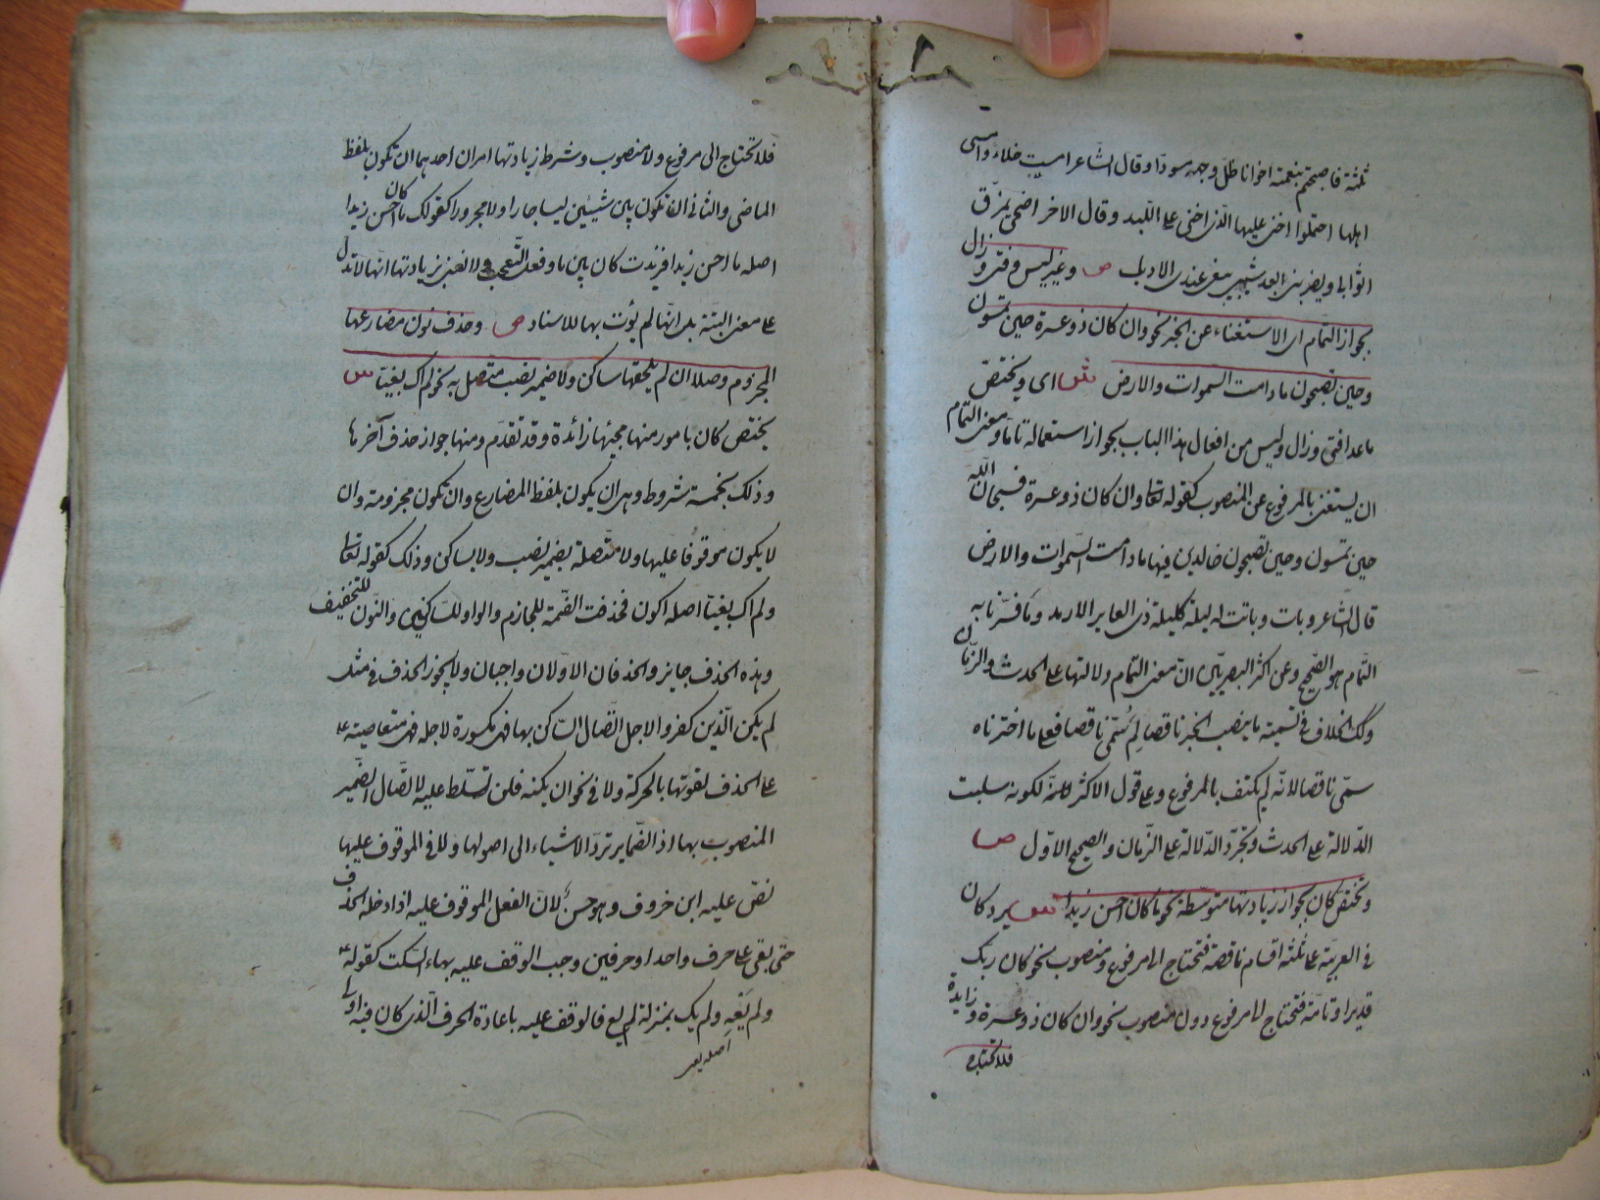 ثلثة فاصبحتم بنعمته اخوانا ظل وجهه مسودا وقال الشاعر امست خلاء وامسى
اهلها احتملوا اخنى عليها الذى اخنى على اللبد وقال الاخر اضحى يمزق
اثوابى ويضربنى ابعد شيبى يبغى عندى الادبا ص وغير ليس وفتئ وزال
بجواز التمام اى الاستغناء عن الخبر نحو وان كان ذو عسرة حين تمسون
وحين تصبحون ما دامت السموات والارض ش اى ويختص
ما عدا فتئ وزال وليس من افعال هذا الباب بجواز استعماله تاما ومعنى التمام
ان يستغنى بالمرفوع عن المنصوب كقوله تعا وان كان ذو عسرة فسبحان الله
حين تمسون وحين تصبحون خالدين فيها ما دامت السموات والارض
قال الشاعر وبات وباتت له ليلة كليلة ذى العاير الارمد وما فسرنا به
التمام هو الصحيح وعن اكثر البصريين ان معنى التمام دلالتها على الحدث والزمان
وكك الخلاف فى تسمية ما ينصب الخبر ناقصا لم سمى ناقصا فعلى ما اخترناه
سمى ناقصا لانه لم يكتف بالمرفوع وعلى قول الاكثر لانه لكونه سلبت
الدلالة على الحدث وتجرد الدلالة على الزمان والصحيح الاول ص
وتختص كان بجواز زيادتها متوسطة نحو ما كان احسن زيدا ش يرد كان
فى العربية على ثلثة اقسام ناقصة فتحتاج الى مرفوع ومنصوب نحو كان ربك
قديرا وتامة فتحتاج الى مرفوع دون منصوب نحو وان كان ذو عسرة وزايدة
فلا تحتاج
فلا تحتاج الى مرفوع ولا منصوب وشرط زيادتها امران احدهما ان تكون بلفظ
الماضى والثانى ان تكون بين شيئين ليسا جارا ولا مجرورا كقولك ما كان احسن زيدا
اصله ما احسن زيدا فزيدت كان بين ما وفعل التعجب ولا نعنى بزيادتها انها لا تدل
على معنى البتة بل انها لم يؤت بها للاسناد ص وحذف نون مضارعها
المجزوم وصلا ان لم يلحقها ساكن ولا ضمير نصب متصل به نحو لم اك بغيا ش
يختص كان بامور منها مجيئها زائدة وقد تقدم ومنها جواز حذف آخرها
وذلك بخمسة شروط وهى ان يكون بلفظ المضارع وان تكون مجزومة وان
لا يكون موقوفا عليها ولا متصلة بضمير نصب ولا بساكن وذلك كقوله تعا
ولم اك بغيا اصله اكون فحذفت الضمة للجازم والواو للساكنين والنون للتخفيف
وهذه الحذف جايز والحذفان الاولان واجبان ولا يجوز الحذف فى مثل
لم يكن الذين كفروا لاجل اتصال الساكن بها فهى مكسورة لاجله فهى متعاصية
على الحذف لقوتها بالحركة ولا فى نحو ان يكنه فلن تسلط عليه لاتصال الضمير
المنصوب بها اذ الضماير ترد الاشياء الى اصولها ولا فى الموقوف عليها
نص عليه ابن خروف وهو حسن لان الفعل الموقوف عليه اذا دخله الحذف
حتى بقى على حرف واحد او حرفين وجب الوقف عليه بهاء السكت كقوله
ولم يعه ولم يك بمنزلة لم يع فالوقف عليه باعادة الحرف الذى كان فيه اولى
اصله يعى